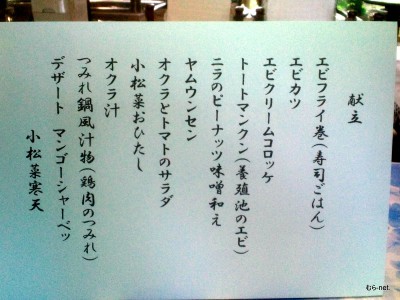 献立
エビフライ巻(寿司ごはん)
エビカツ
エビクリームコロッケ
トートマンクン(養殖池のエビ)
ニラのピーナッツ味噌和え
ヤムウンセン
オクラとトマトのサラダ
小松菜おひたし
オクラ汁
つみれ鍋風汁物(鶏肉のつみれ)
デザート マンゴーシャーベッ
小松菜寒天
むら-net.